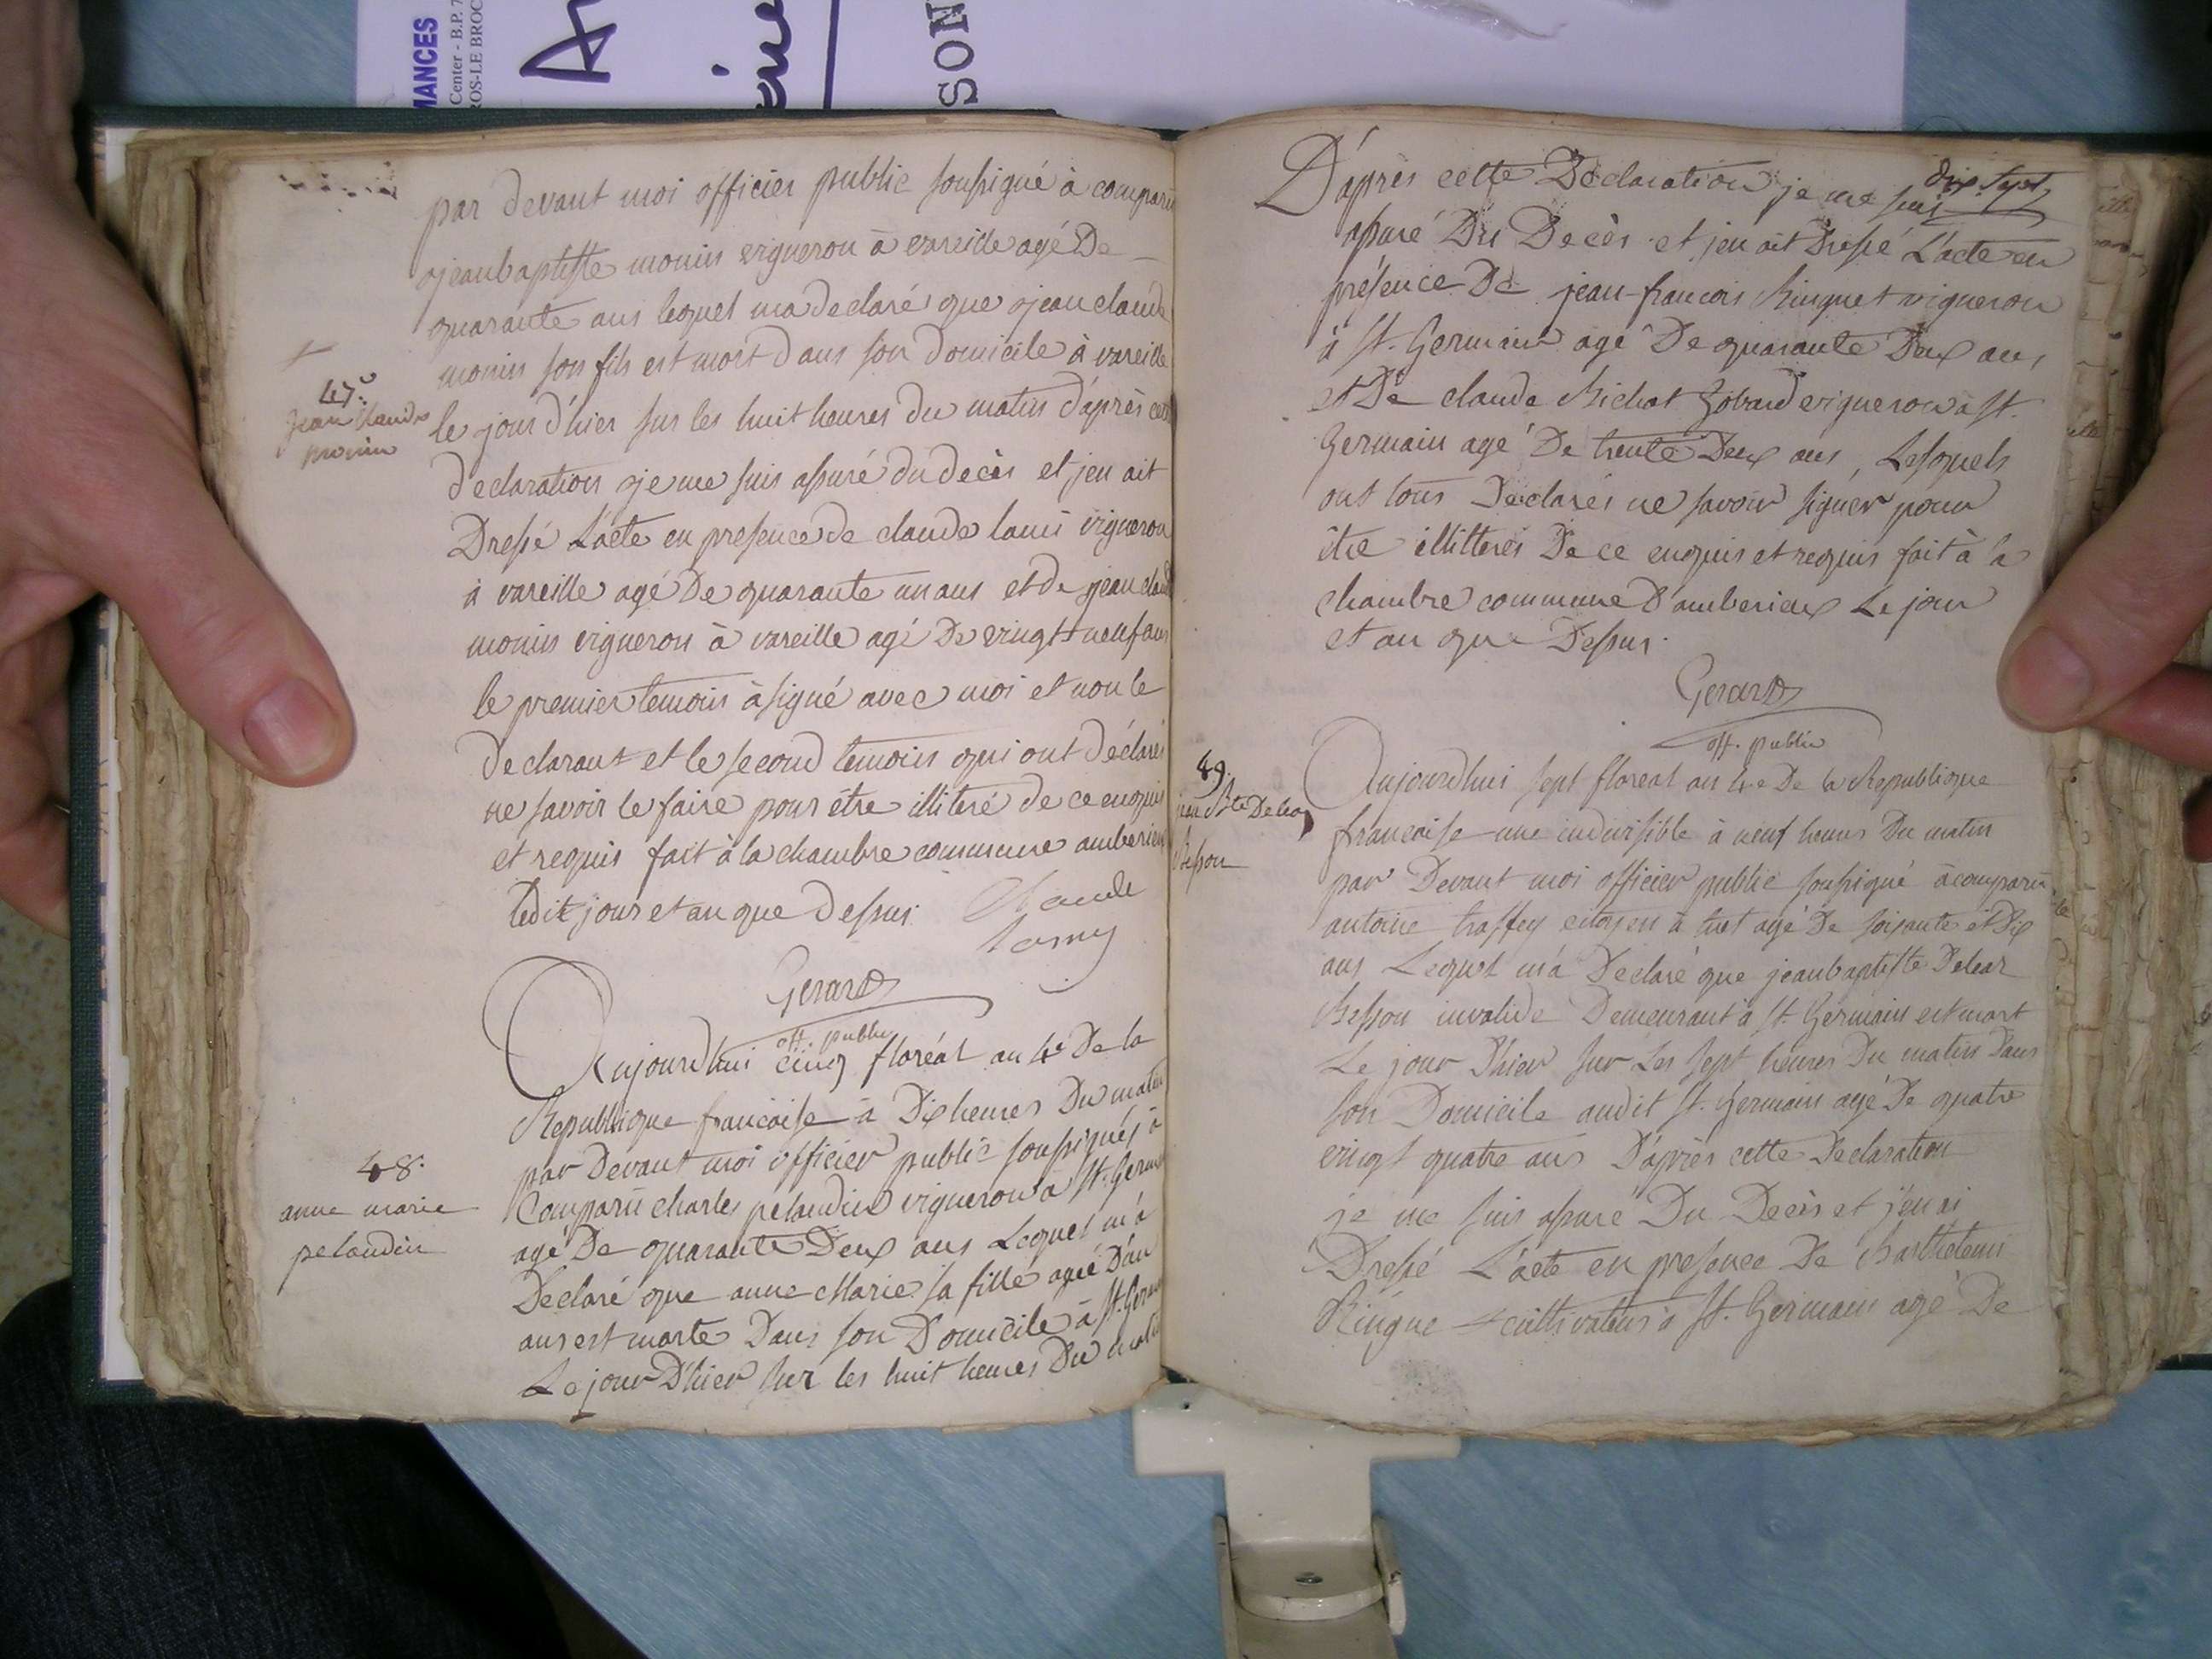 MANCES
Center - B.P. 7
ROS-LE BROC
SON
par devant moi officier public soussigné à comparu
jeanbaptiste monin vigneron à vareille agé De
quarante ans lequel ma declaré que jean claude
monin son fils est mort dans son domicile à vareille
le jour d'hier sur les huit heures du matin d'après cet
declaration je me suis assuré du decès et jen ait
Dressé L'acte en presence de claude lami vigneron
à vareille agé De quarante un ans et de jean claud
monin vigneron à vareille agé De vingt neuf ans
le premier temoin à signé avec moi et non le
declarant et le second temoin qui ont déclaré
ne savoir le faire pour être illiteré de ce enquis
et requis fait à la chambre commune amberieu
ledit jour et an que dessus.
Claude
Lamy
Gerard
off. public
47e
jean claude
monin
Aujourdhui cinq floréal an 4e De la
Republique francaise à Dix heures Du matin
par Devant moi officier public soussigné à
Comparu charles pelaudin vigneron à St. Germ
agé De quarante Deux ans Lequel m'a
Declaré que anne Marie sa fille agée D'un
ans est morte Dans son Domicile à St. Germ
Le jour D'hier sur les huit heures Du matin
48.
anne marie
pelaudin
dix sept
D'après cette Déclaration je me suis
assuré Du Decès et jen ait Dressé L'acte en
présence De jean francois Ringuet vigneron
à St. Germain agé De quarante Deux ans,
et De claude Michat Gobard vigneron à St.
Germain agé De trente Deux ans, Lesquels
ont tous Déclarés ne savoir signer pour
être illitterés De ce enquis et requis fait à la
chambre commune D'amberieux Le jour
et an que Dessus.
Gerard
off. public
49.
jean Bte Delear
Besson
Aujourdhui sept floreal an 4.e De la Republique
francaise une indivisible à neuf heures Du matin
par Devant moi officier public soussigné à comparu
antoine traffey citoyen à tret agé De soixante et Dix
ans Lequel m'a Declaré que jeanbaptiste Delear
Besson invalide Demeurant à St. Germain est mort
Le jour D'hier sur Les sept heures Du matin Dans
son Domicile audit St. Germain agé De quatre
vingt quatre ans D'après cette Declaration
je me suis assuré Du Decès et j'en ai
Dressé L'acte en presence De Barthelemi
Ringue cultivateur à St. Germain agé De